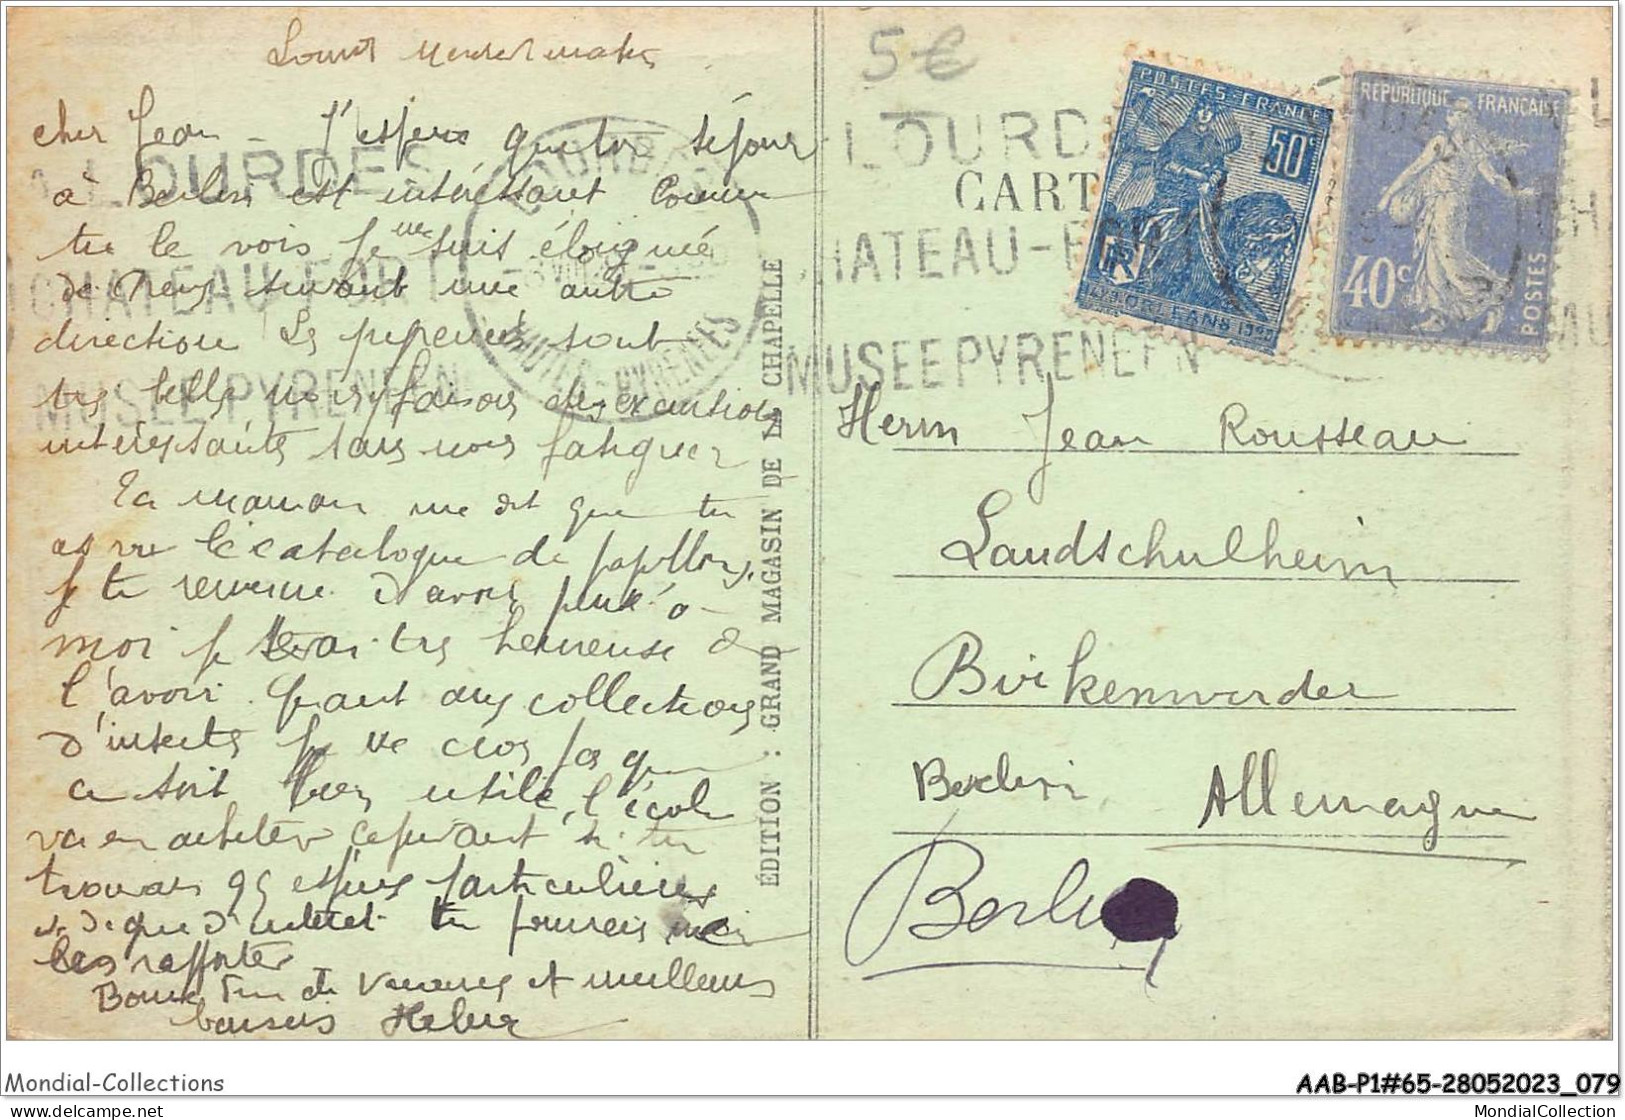 5€
cher Jean - J'espère que ton séjour
à Berlin est intéressant Comme
tu le vois je me suis éloignée
de Nerys suivant une autre
direction Les pyrenees sont
tres belles nous faisons des excursions
intéressantes sans nous fatiguer
Ta maman me dit que tu
as vu le catalogue de papillons,
je te remercie d'avoir pensé à
moi je serai très heureuse de
l'avoir. Quant aux collections
d'insectes je ne crois pas que
ce soit bien utile, l'école
va en acheter cependant si tu
trouvais qq espèces particulières
et dique d'intérêt tu pourrais me
les rapporter
Bonne fin de vacances et meilleurs
baisers
LOURDES
CHATEAU-FORT
MUSEE PYRENEEN
LOURDES
HTES-PYRENEES
ÉDITION : GRAND MAGASIN DE LA CHAPELLE
LOURD
CART
HATEAU-F
MUSEE PYRENEEN
POSTES-FRANCE
50c
RF
D'ORLEANS 1929
REPUBLIQUE FRANÇAISE
40c
POSTES
Herrn Jean Rousseau
Landschulheim
Birkenwerder
Berlin Allemagne
Berlin
Mondial-Collections
AAB-P1#65-28052023_079
www.delcampe.net
MondialCollection